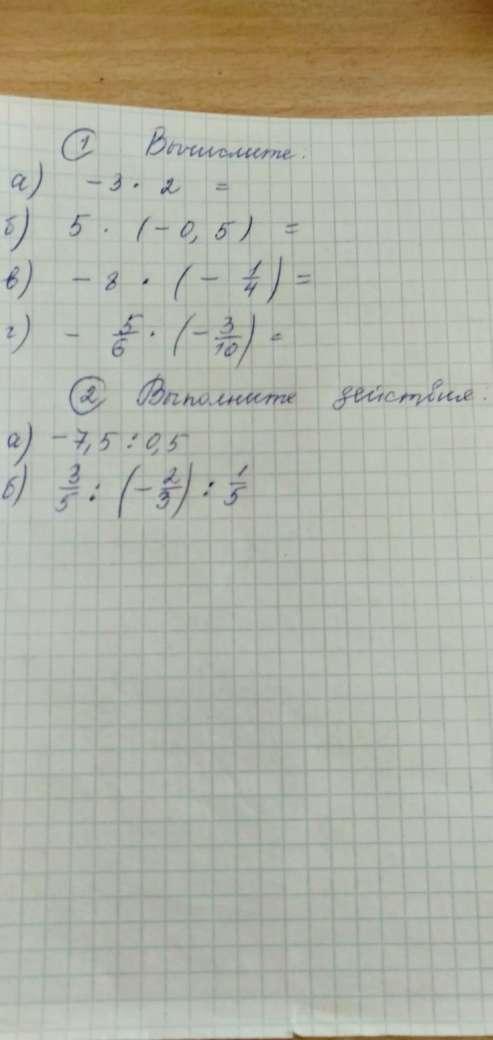 ① Вычислите.
а) -3 · 2 =
б) 5 · (-0,5) =
в) -8 · (-1/4) =
г) -5/6 · (-3/10) =
② Выполните действия.
а) -7,5 : 0,5
б) 3/5 : (-2/3) : 1/5